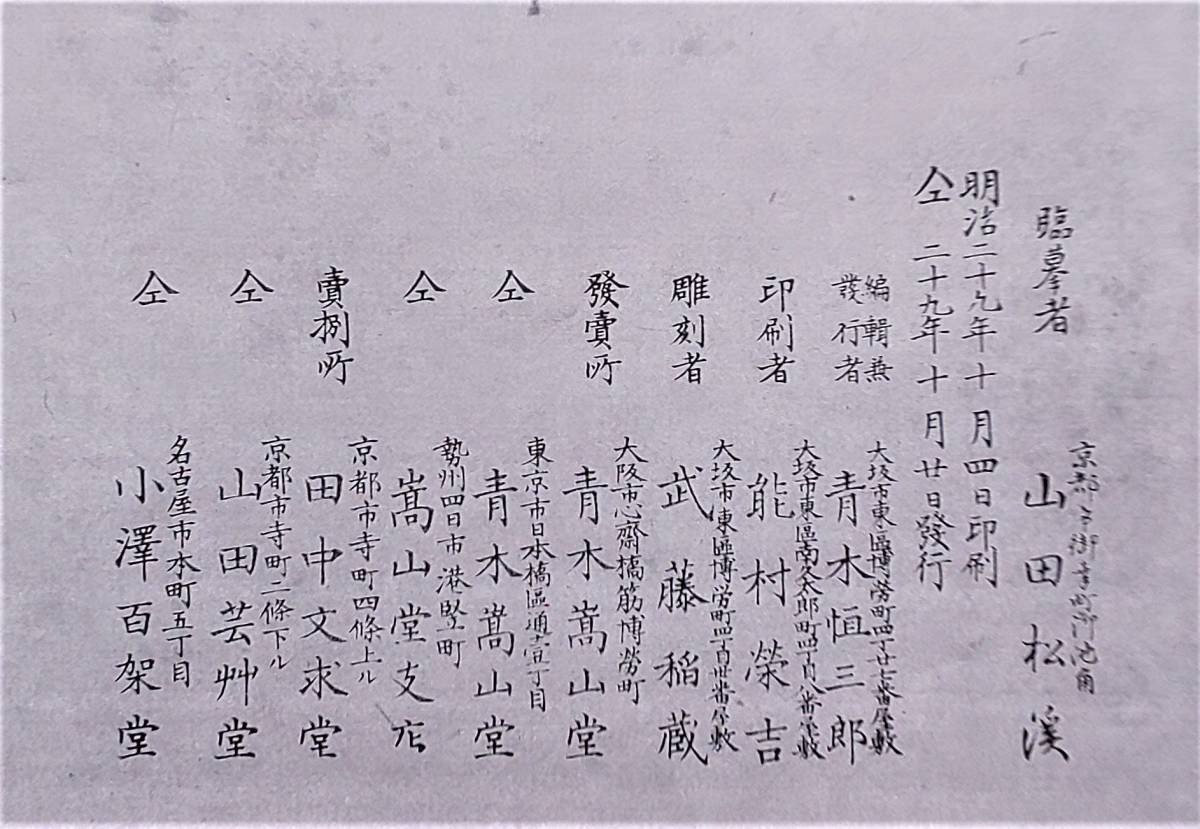 臨摹者
京都市御幸町御池角
山田松溪
明治二十九年十月四日印刷
仝 二十九年十月廿日發行
編輯兼
發行者
大坂市東區博労町四丁目廿七番屋敷
青木恒三郎
印刷者
大坂市東區南久太郎町四丁目八番屋敷
能村榮吉
雕刻者
大坂市東區博労町四丁目卅番屋敷
武藤稲蔵
發賣所
大阪市心齋橋筋博勞町
青木嵩山堂
仝
東京市日本橋區通壹丁目
青木嵩山堂
仝
勢州四日市港竪町
嵩山堂支店
賣捌所
京都市寺町四條上ル
田中文求堂
仝
京都市寺町二條下ル
山田芸艸堂
仝
名古屋市本町五丁目
小澤百架堂